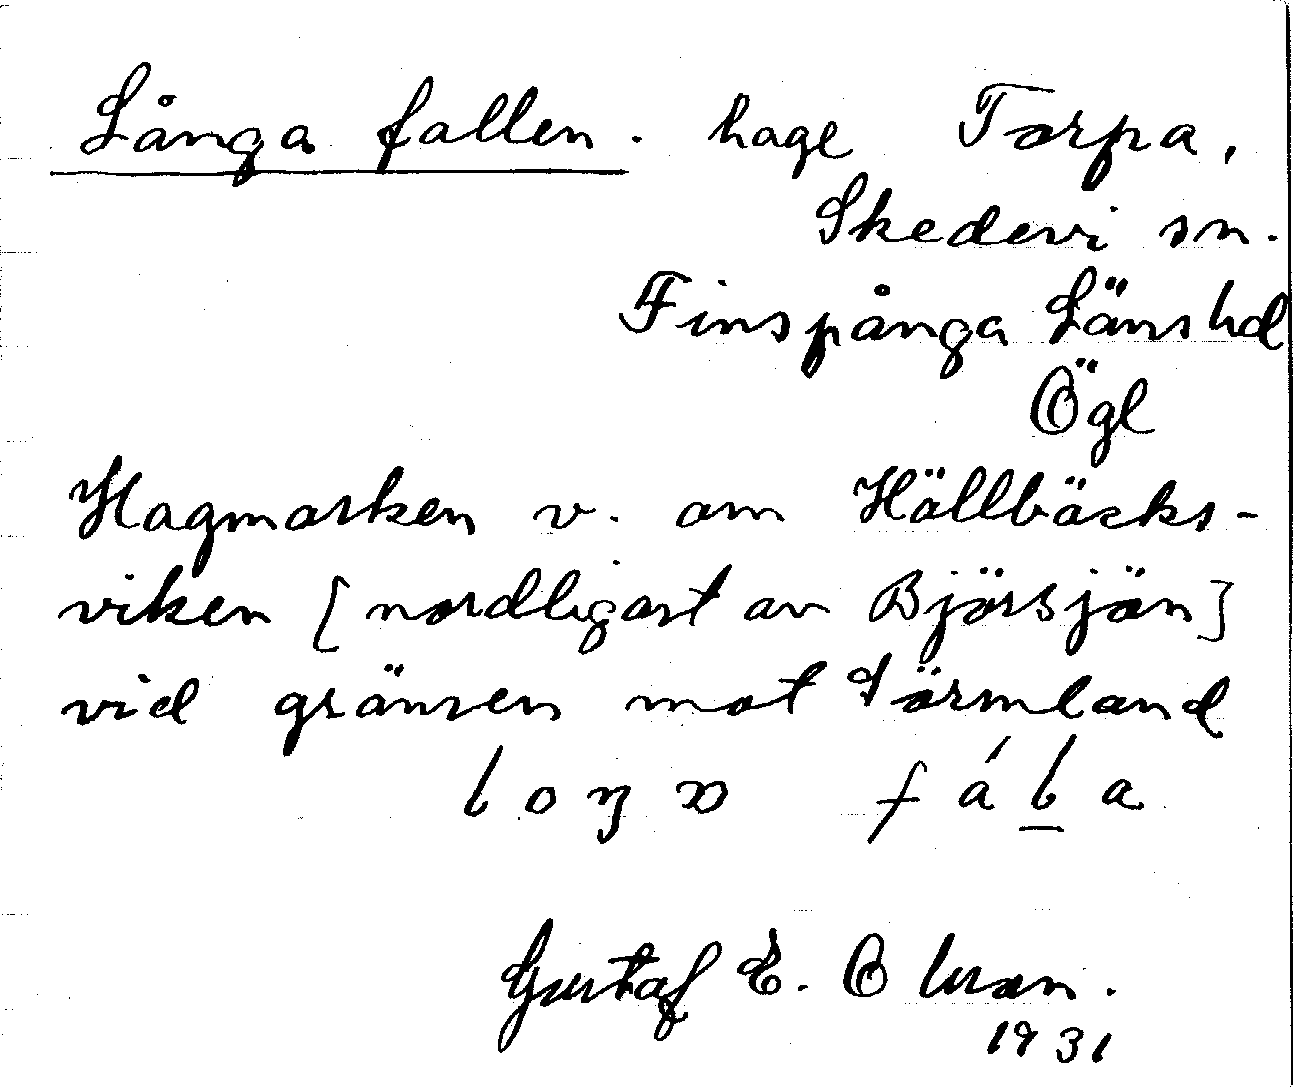 Långa fallen. hage Torpa,
Skedevi sn.
Finspånga Länshd
Ögl
Hagmarken v. om Hällbäcks-
viken [nordligast av Björsjön]
vid gränsen mot Sörmland
loŋɷ fála
Gustaf E. Olsson.
1931